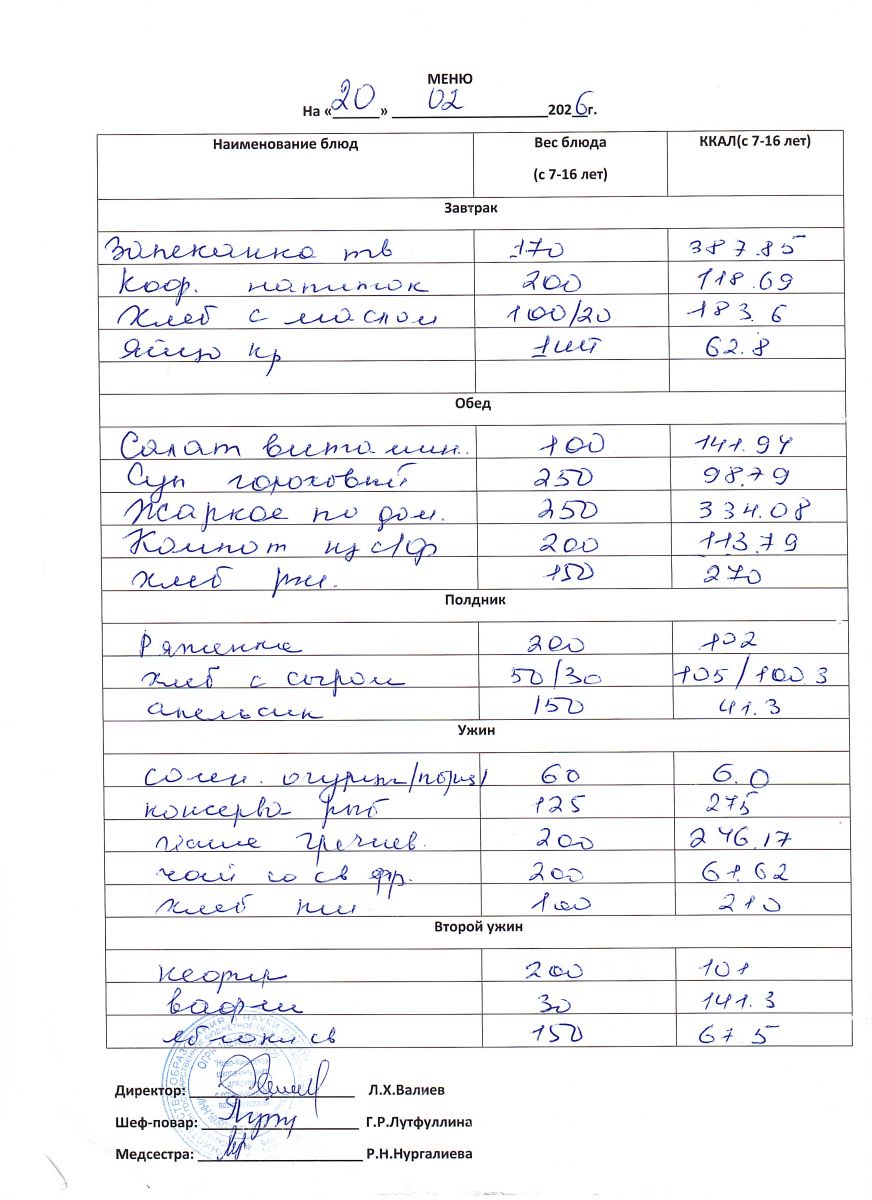 МЕНЮ
На «20» 02 2026г.
Наименование блюд Вес блюда (с 7-16 лет) ККАЛ(с 7-16 лет)
Завтрак
Запеканка тв 170 387.85
Коф. напиток 200 118.69
Хлеб с маслом 100/20 183.6
Яйцо кр 1шт 62.8
Обед
Салат витамин. 100 141.94
Суп гороховый 250 98.79
Жаркое по дом. 250 334.08
Компот из с/ф 200 113.79
хлеб рж. 150 270
Полдник
Ряженка 200 102
хлеб с сыром 50/30 105/100.3
апельсин 150 41.3
Ужин
солен. огурцы 60 6.0
консерва рыб 125 275
гречнев. 200 246.17
чай со св фр. 200 61.62
хлеб рж 100 210
Второй ужин
кефир 200 101
вафли 30 141.3
яблоки св 150 67.5
Директор: Л.Х.Валиев
Шеф-повар: Г.Р.Лутфуллина
Медсестра: Р.Н.Нургалиева